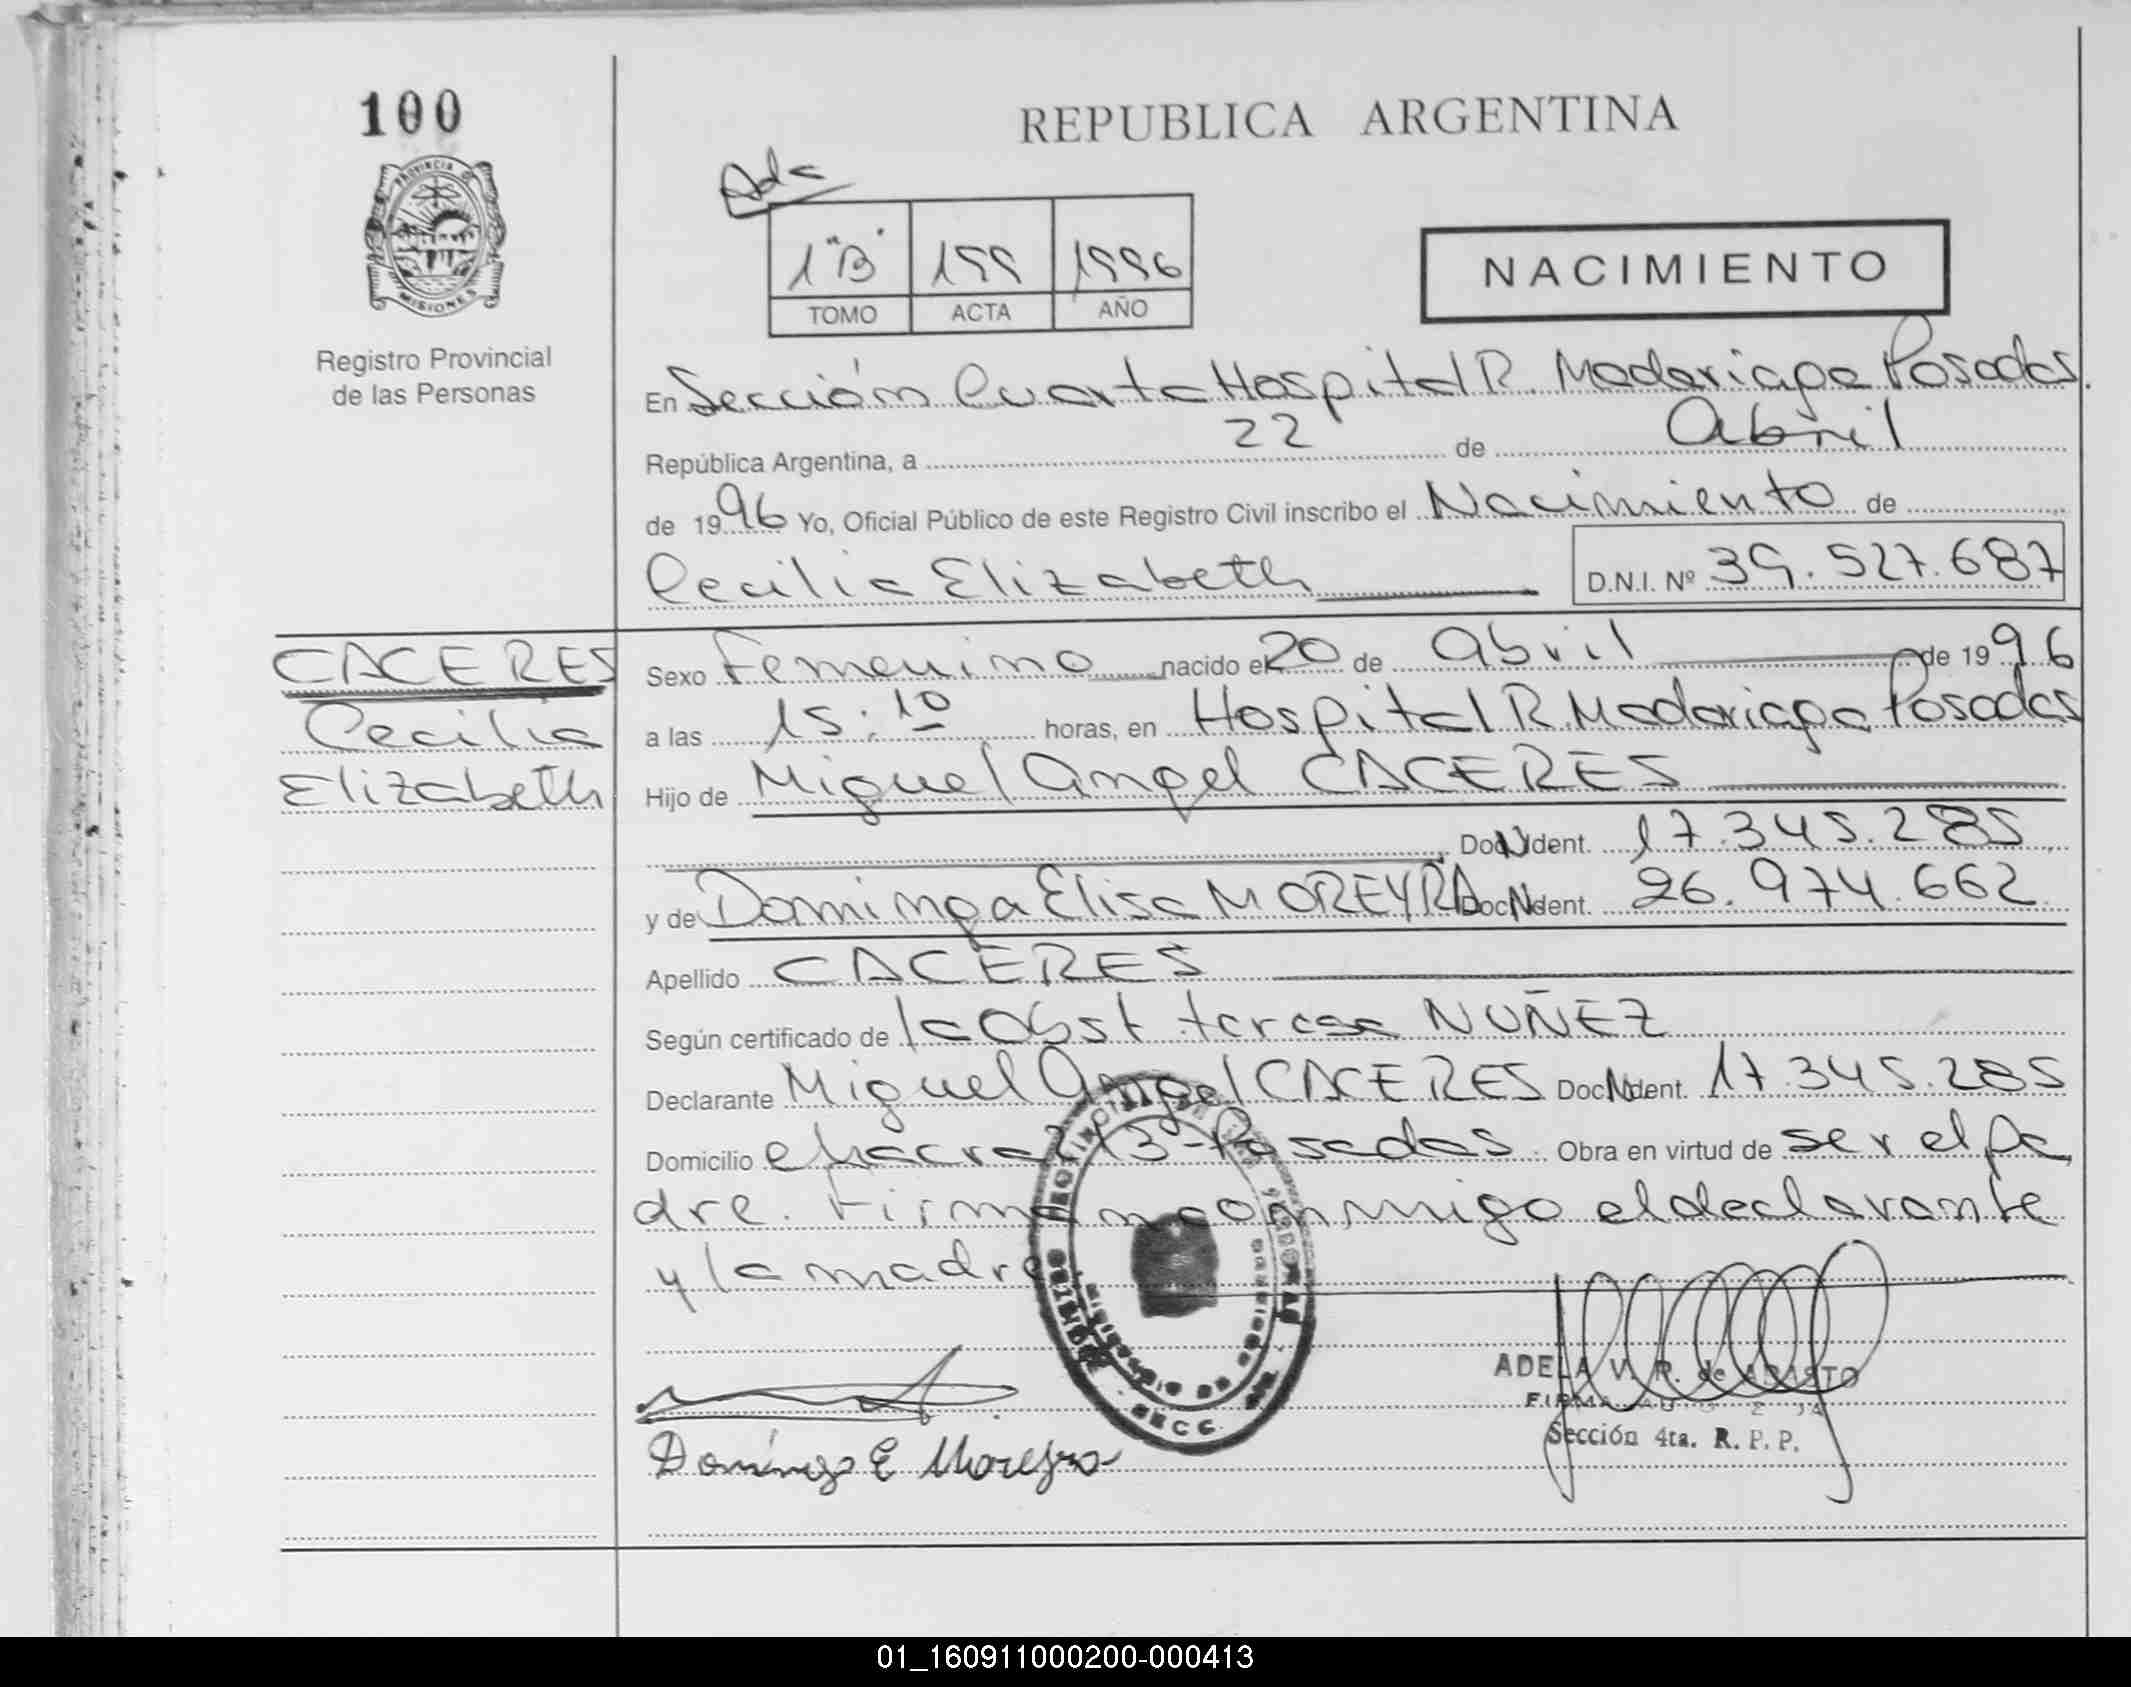 100
REPUBLICA ARGENTINA
PROVINCIA D
MISIONES
Registro Provincial
de las Personas
1 "B" 199 1996
TOMO ACTA AÑO
NACIMIENTO
En Sección Cuarta Hospital R. Madariaga Posadas.
República Argentina, a 22 de Abril
de 1996 Yo, Oficial Público de este Registro Civil inscribo el Nacimiento de
Cecilia Elizabeth D.N.I. Nº 39.527.687
CACERES
Cecilia
Elizabeth
Sexo Femenino nacido el 20 de Abril de 1996
a las 15:10 horas, en Hospital R. Madariaga Posadas
Hijo de Miguel Angel CACERES
Doc. Ident. 17.345.285
y de Dominga Elisa MOREYRA Doc. Ident. 26.974.662
Apellido CACERES
Según certificado de la Obst. teresa NUÑEZ
Declarante Miguel Angel CACERES Doc. Ident. 17.345.285
Domicilio chacra 213 - Posadas. Obra en virtud de ser el pa
dre. Firman conmigo el declarante
y la madre
Dominga E Moreyra
ADELA V. R. de
FIRMA
Sección 4ta. R. P. P.
01_160911000200-000413